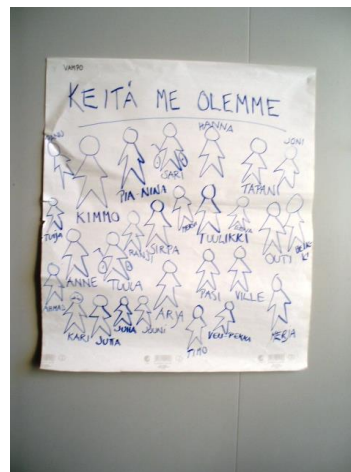 VAMPO
KEITÄ ME OLEMME
HANNA
JONI
SARI
PIA-NINA
TAPANI
KIMMO
TUIJA
TUULIKKI
SIRPA
OUTI
ANNE
TUULA
PASI
VILLE
ARJA
KARI
JUTTA
JUHA
JOUNI
TIMO
VELI-PEKKA
MERJA